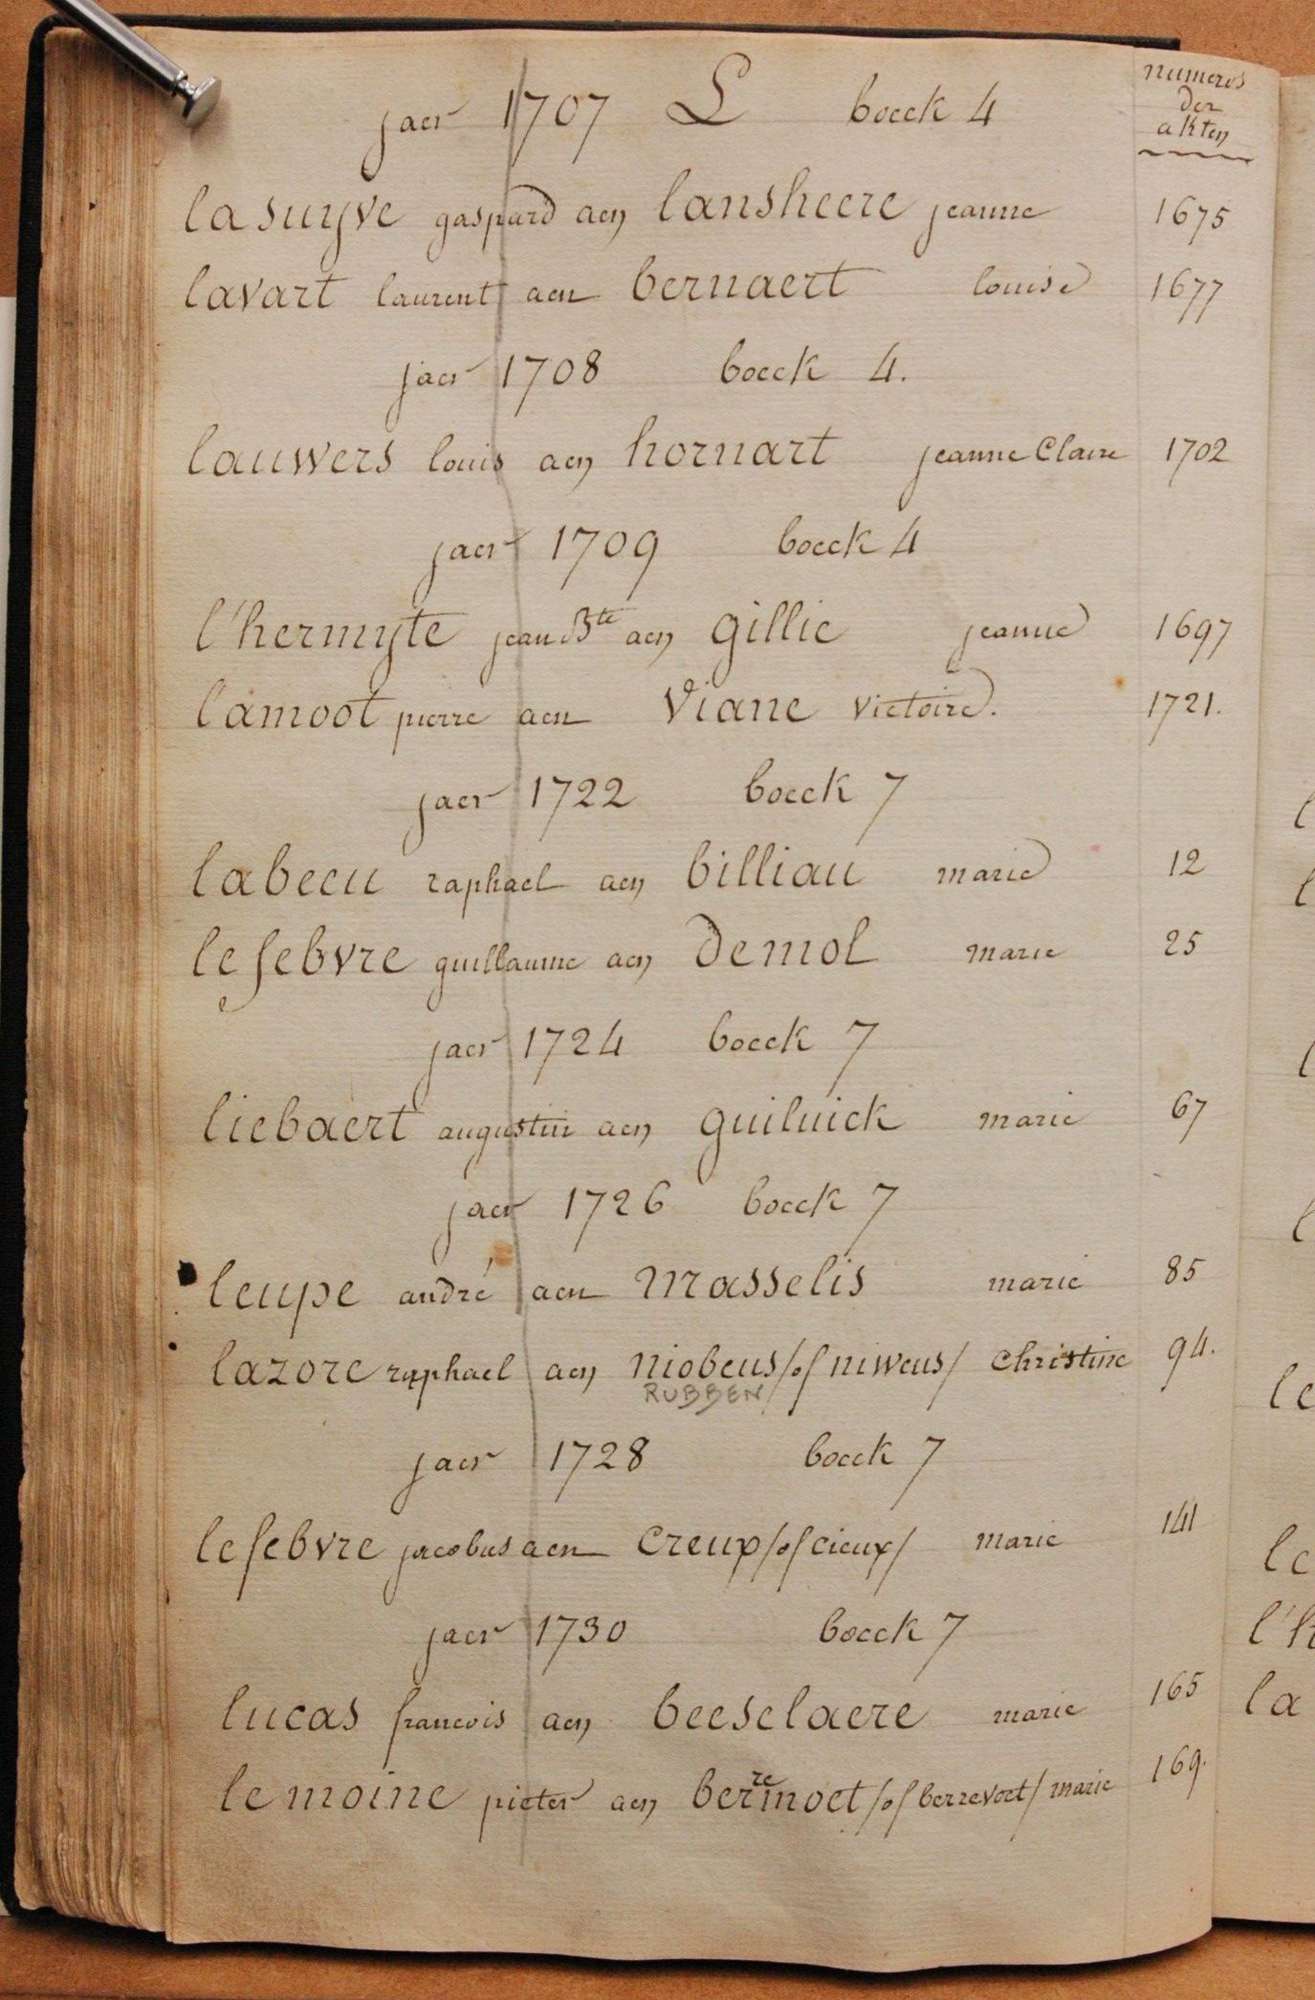 jaer 1707 L boeck 4
numeros
der
akten
lasuyve gaspard aen lansheere jeanne 1675
lavart laurent aen bernaert louise 1677
jaer 1708 boeck 4.
lauwers louis aen hornart jeanne Claire 1702
jaer 1709 boeck 4
l'hermyte jean Bte aen gillie jeanne 1697
lamoot pierre aen Viane victoire. 1721.
jaer 1722 boeck 7
labeeu raphael aen billiau marie 12
lefebvre guillaume aen demol marie 25
jaer 1724 boeck 7
liebaert augustin aen guiluick marie 67
jaer 1726 boeck 7
leupe andré aen masselis marie 85
lazore raphael aen niobeus /of niweus/ christine 94.
RUBBEN
jaer 1728 boeck 7
lefebvre jacobus aen creux /of cieux/ marie 141
jaer 1730 boeck 7
lucas francois aen beeselaere marie 165
le moine pieter aen bermoet /of berrevoet/ marie 169.